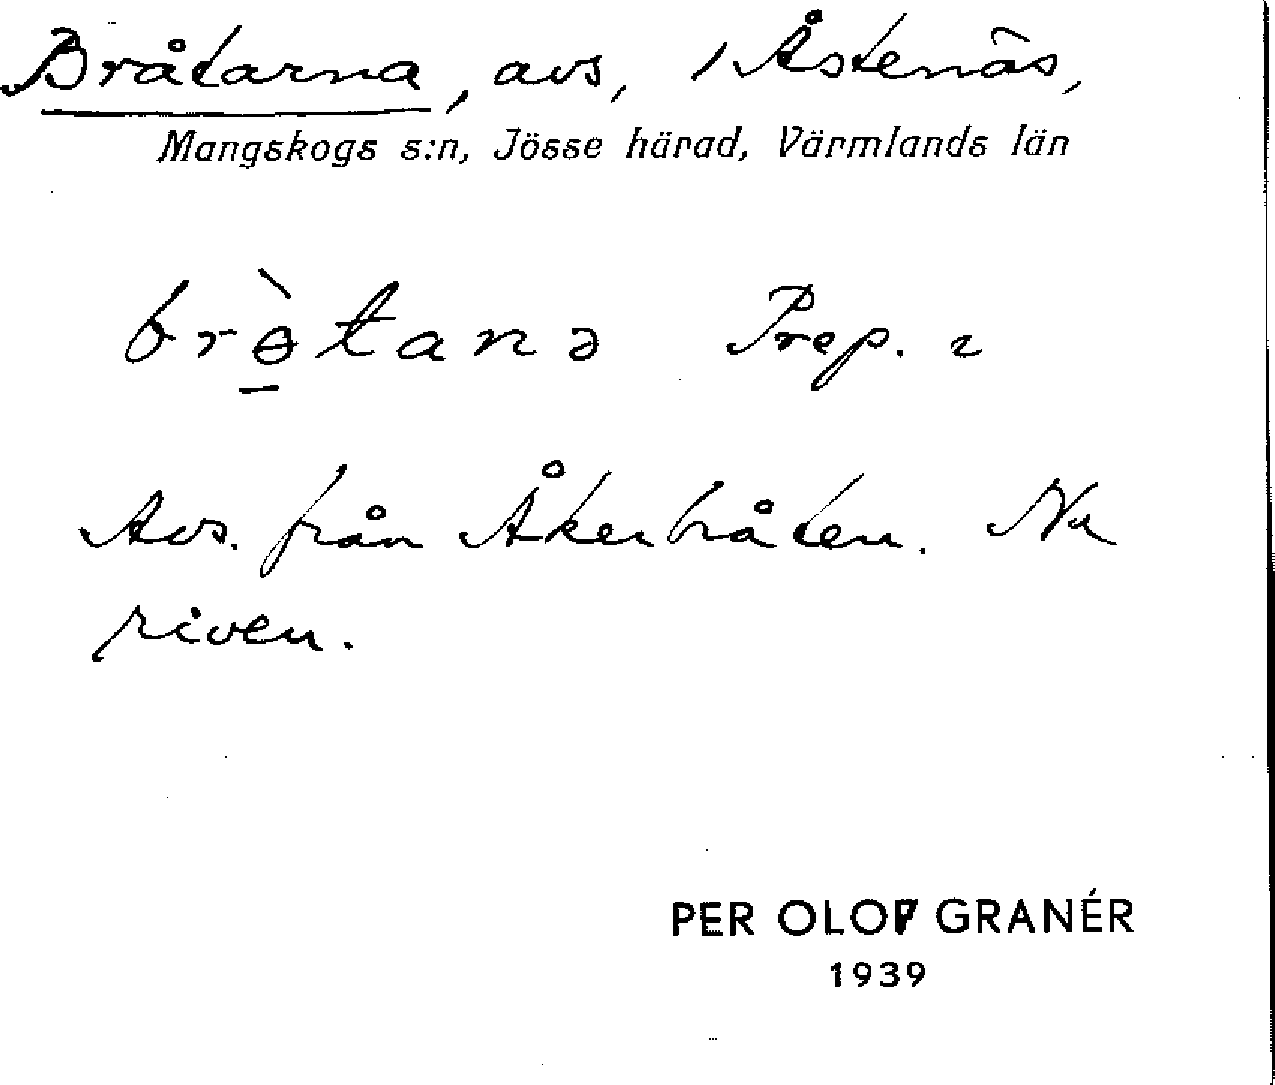 Bråtarna, avs, 1 Åstenäs,
Mangskogs s:n, Jösse härad, Värmlands län
brɵ̠̀tanə Prep. ɩ
Avs. från Åkerbråten. Nu
riven.
PER OLOF GRANÉR
1939